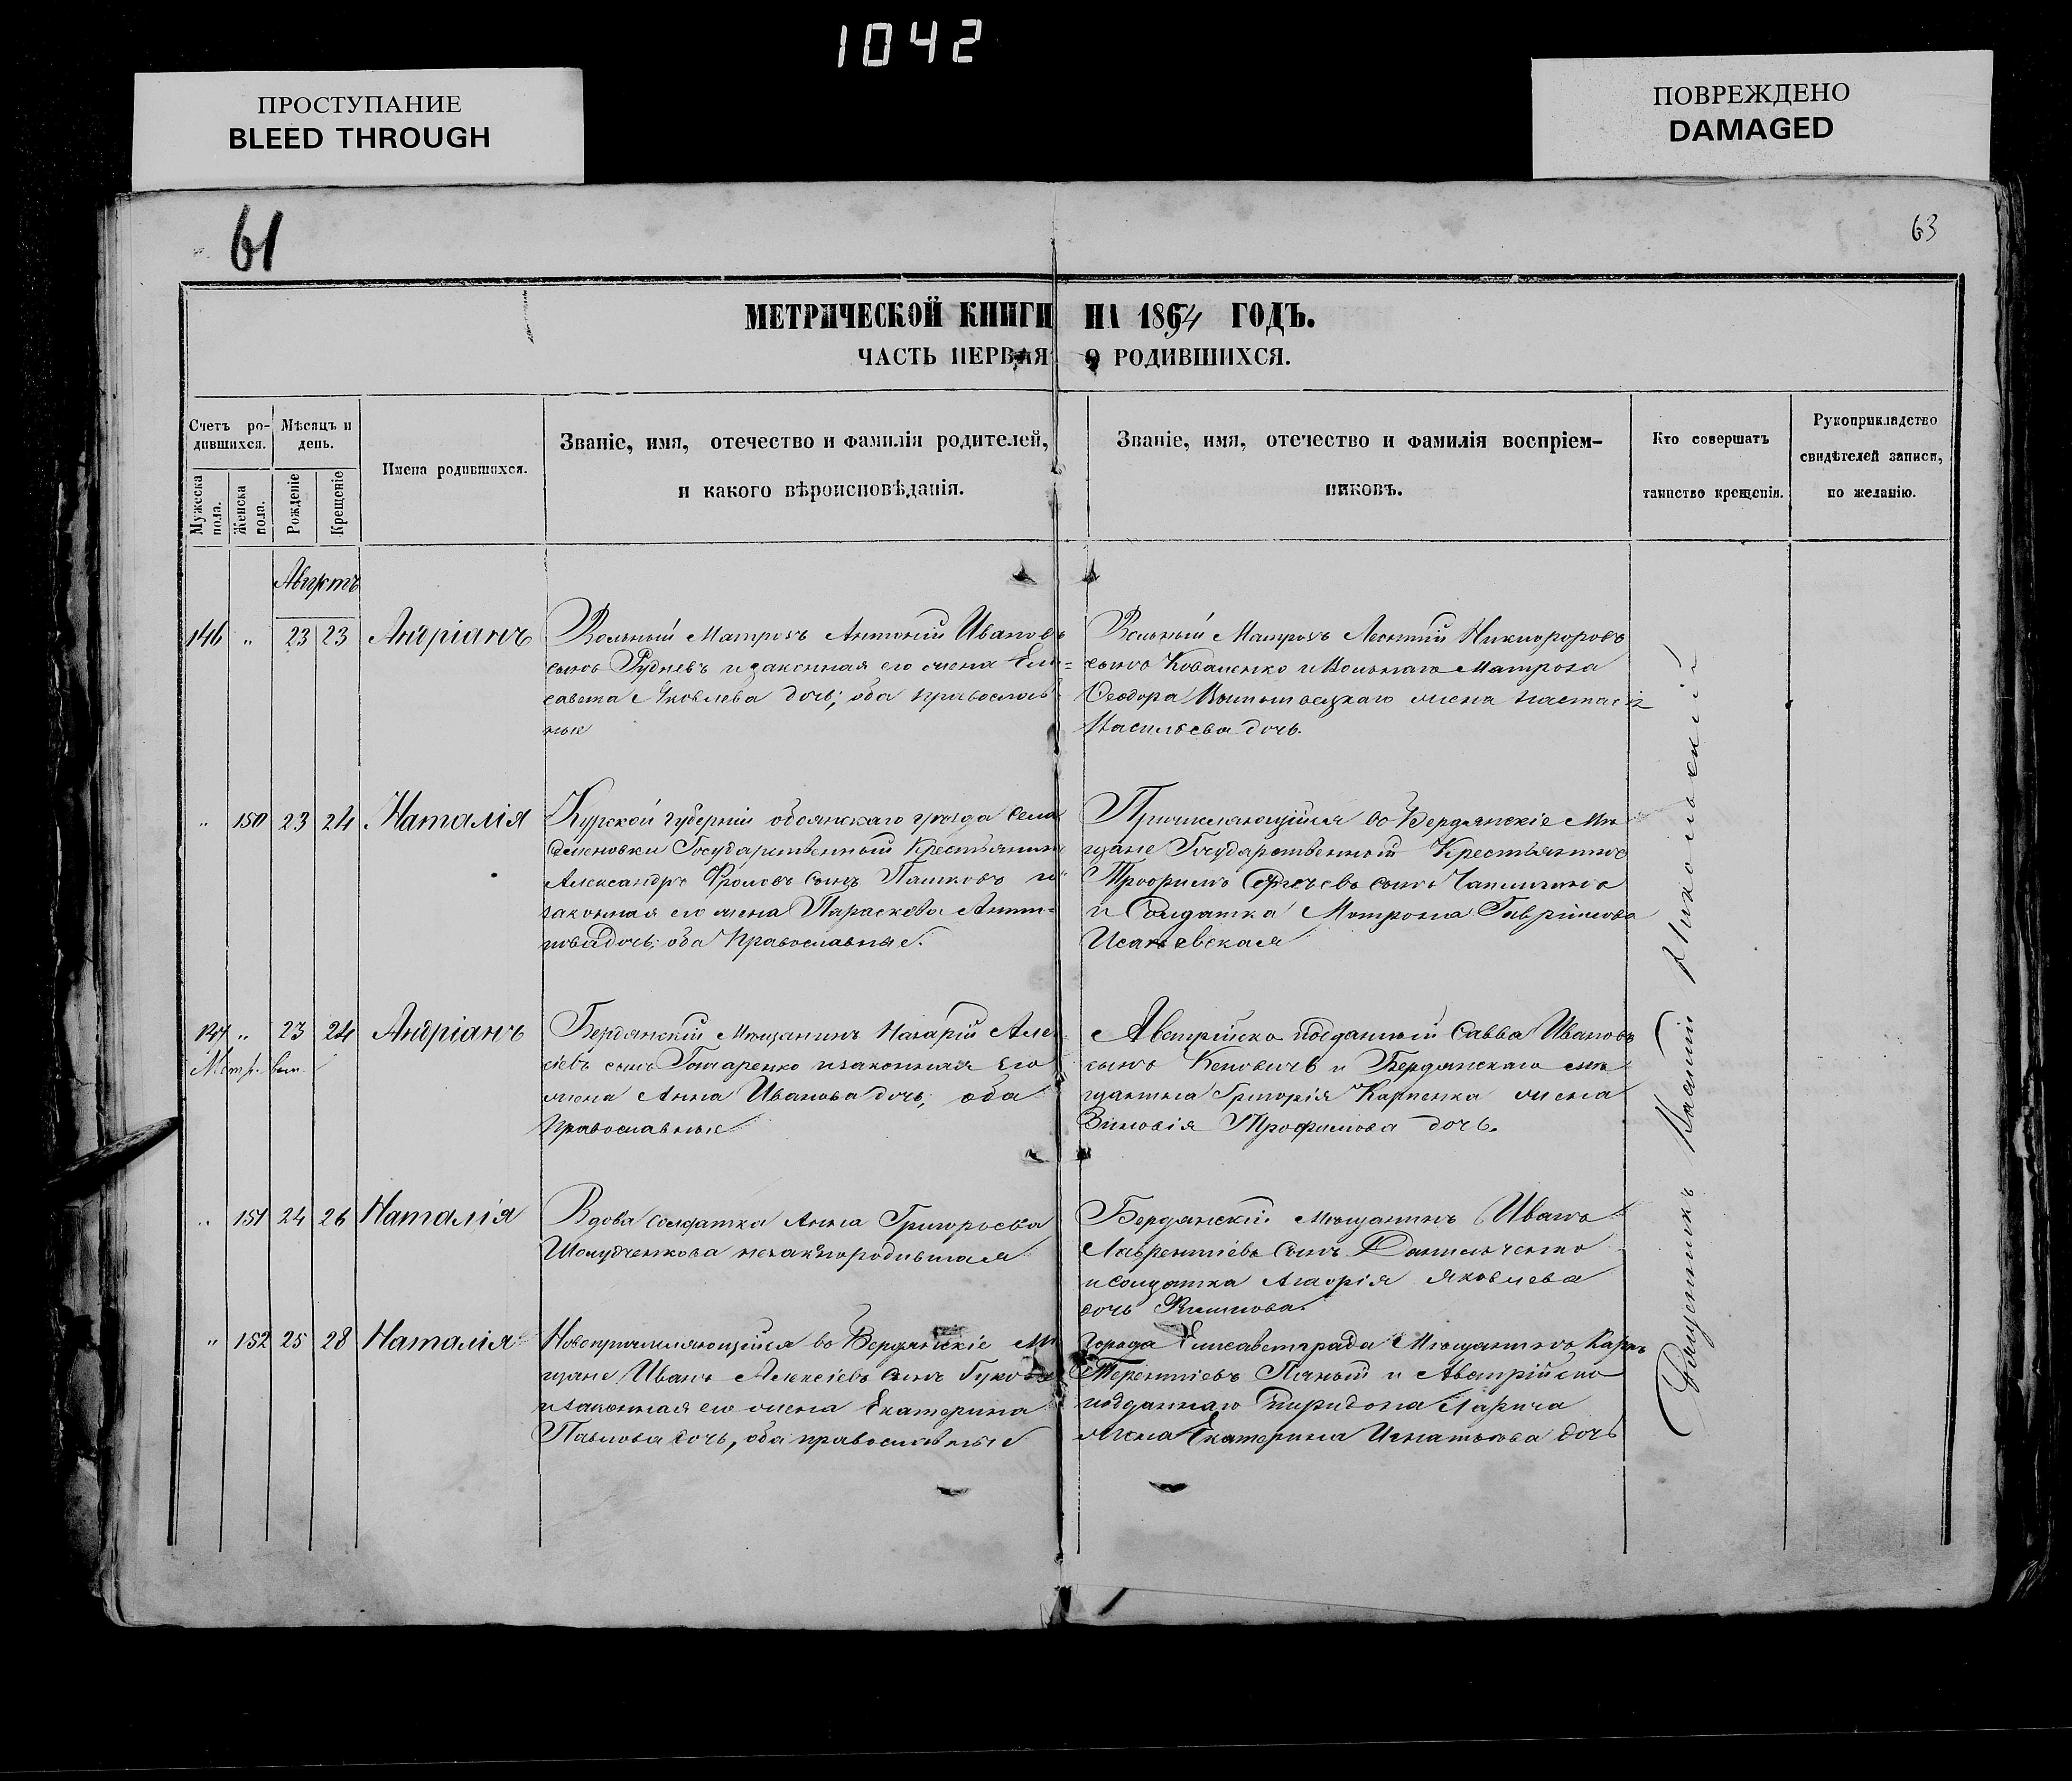 1042
ПРОСТУПАНИЕ
BLEED THROUGH
ПОВРЕЖДЕНО
DAMAGED
61
63
МЕТРИЧЕСКОЙ КНИГИ НА 1864 ГОДЪ.
ЧАСТЬ ПЕРВАЯ О РОДИВШИХСЯ.
Счетъ ро-
дившихся.
Мужеска пола.
Женска пола.
Мѣсяцъ и
день.
Рожденіе
Крещеніе
Имена родившихся.
Званіе, имя, отечество и фамилія родителей,
и какого вѣроисповѣданія.
Званіе, имя, отечество и фамилія воспріем-
никовъ.
Кто совершатъ
таинство крещенія.
Рукоприкладство
свидѣтелей записи,
по желанію.
Августъ
146 " 23 23 Андріанъ
Вольный Матрозъ Антоній Ивановъ
сынъ Рудневъ и законная его жена Ели=
савета Яковлева дочь; оба православ
ные
Вольный Матрозъ Леонтій Никифоровъ
сынъ Коваленко и Вольнаго Матроза
Ѳеодора жена Настасія
Васильева дочь.
" 150 23 24 Наталія
Курской губерніи обоянскаго уѣзда села
Семеновки Государственный Крестьянинъ
Александръ Фроловъ сынъ Пашковъ и
законная его жена Параскева Анти=
пова дочь; оба Православные.
Причисляющійся во Бердянскіе Мѣ
щане Государственный Крестьянинъ
Трофимъ Сергѣевъ сынъ
и Солдатка Матрона Гаврилова
Исаевская
147 " 23 24 Андріанъ
Метр. вып.
Бердянскій Мѣщанинъ Назарій Алек
сіевъ сынъ Гончаренко и законная Его
жена Анна Иванова дочь; оба
Православные
Австрійско подданный Савва Ивановъ
сынъ и Бердянскаго мѣ
щанина Григорія Карпенка жена
Зиновія Трофимова дочь.
" 151 24 26 Наталія
Вдова солдатка Анна Григорьева
незаконнородившая
Бердянскій Мѣщанинъ Иванъ
Лаврентіевъ сынъ Данильченко
и солдатка Яковлева
дочь
" 152 25 28 Наталія
Новопричисляющійся во Бердянскіе Мѣ
щане Иванъ Алексіевъ сынъ
и законная его жена Екатерина
Павлова дочь, оба православные
города Елисаветграда Мѣщанинъ Карпъ
Терентіевъ и Австрійско
подданнаго Спиридона Ларича
жена Екатерина Игнатьева дочь
Священникъ Василій Никольскій